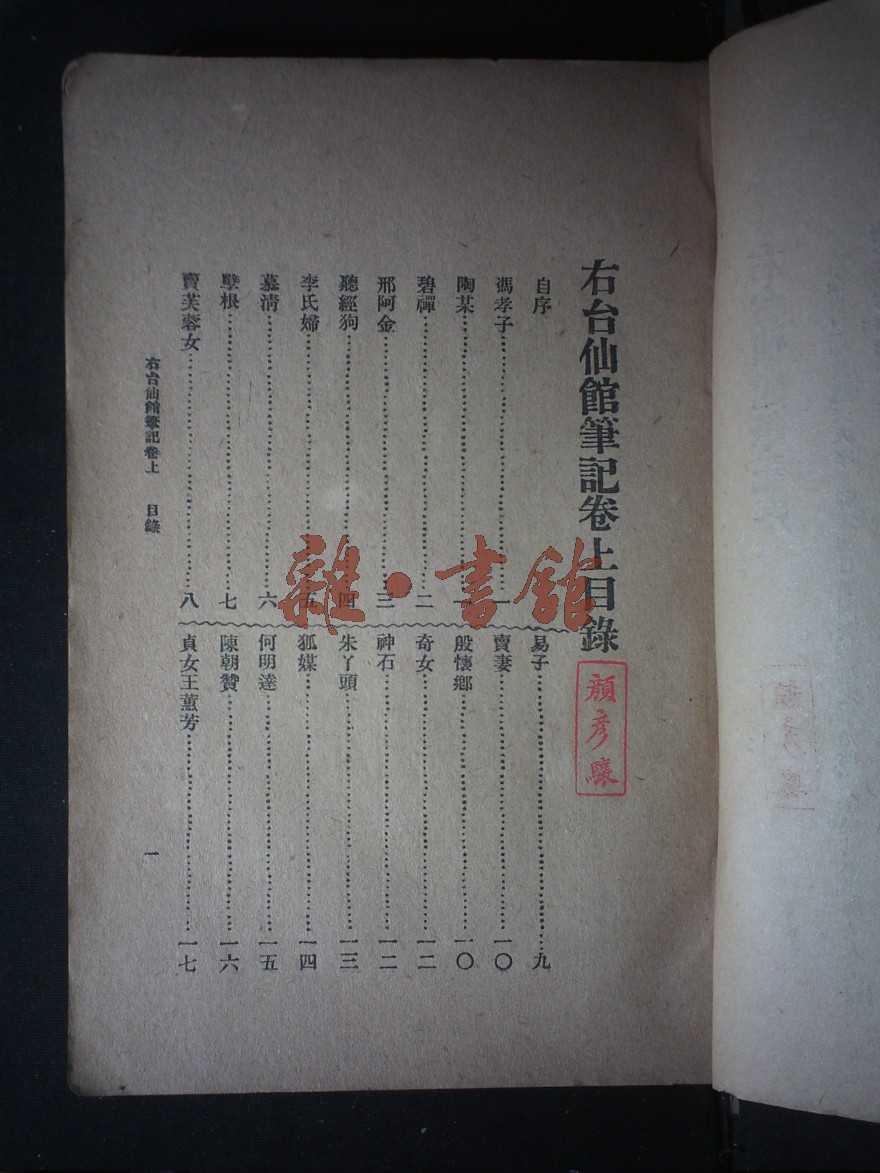 右台仙館筆記卷上目錄
顏彥驤
自序
馮孝子一
陶某一
碧禪二
邢阿金三
聽經狗四
李氏婦五
慕清六
孽根七
賣芙蓉女八
易子九
賣妻一〇
殷懷鄉一〇
奇女一二
神石一二
朱丫頭一三
狐媒一四
何明達一五
陳朝贊一六
貞女王薰芳一七
右台仙館筆記卷上 目錄
一
雜·書館